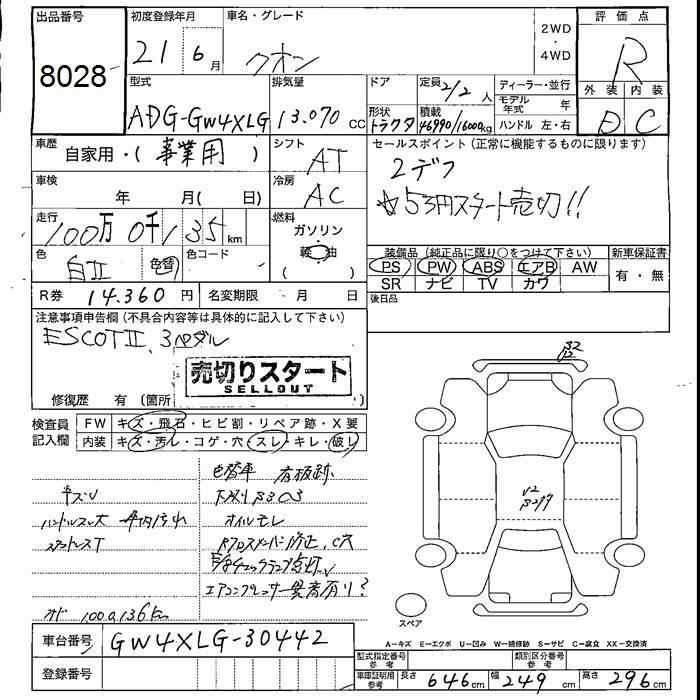 出品番号 初度登録年月 車名・グレード 2WD ・ 4WD 評価点
8028 21 6月 クオン R
型式 排気量 ドア 定員 2/2人 ディーラー・並行 外装 内装
ADG-GW4XLG 13.070cc 形状 トラクタ 積載 46990/16000kg モデル年式 年 ハンドル 左・右 D C
車歴 自家用・(事業用) シフト AT セールスポイント (正常に機能するものに限ります)
2デフ
車検 年 月(日) 冷房 AC ☆5万円スタート売切!!
走行 100万0千135km 燃料 ガソリン 軽油 ( )
色 白II 色替 色コード 装備品 (純正品に限り○をつけて下さい) 新車保証書
PS PW ABS エアB AW 有・無
SR ナビ TV カワ
R券 14.360円 名変期限 月 日 後日品
注意事項申告欄(不具合内容等は具体的に記入して下さい)
ESCOTII、3ペダル
売切りスタート
SELLOUT
修復歴 有 (箇所
検査員記入欄 FW キズ・飛石・ヒビ割・リペア跡・X要
内装 キズ・汚レ・コゲ・穴・スレ・キレ・破レ
色替車 看板跡
キズV 下廻りBSC3
ハンドルスレ大 車内汚れ オイルモレ
スタートレスT
エアコンプレッサー異音有り?
オド 1000136km
車台番号 GW4XLG-30442
登録番号
スペア
A=キズ E=エクボ U=凹み W=補修跡 S=サビ C=腐食 XX=交換済
型式指定番号 参考 類別区分番号 参考
車庫証明用 参考 長さ 646cm 幅 249cm 高さ 296cm